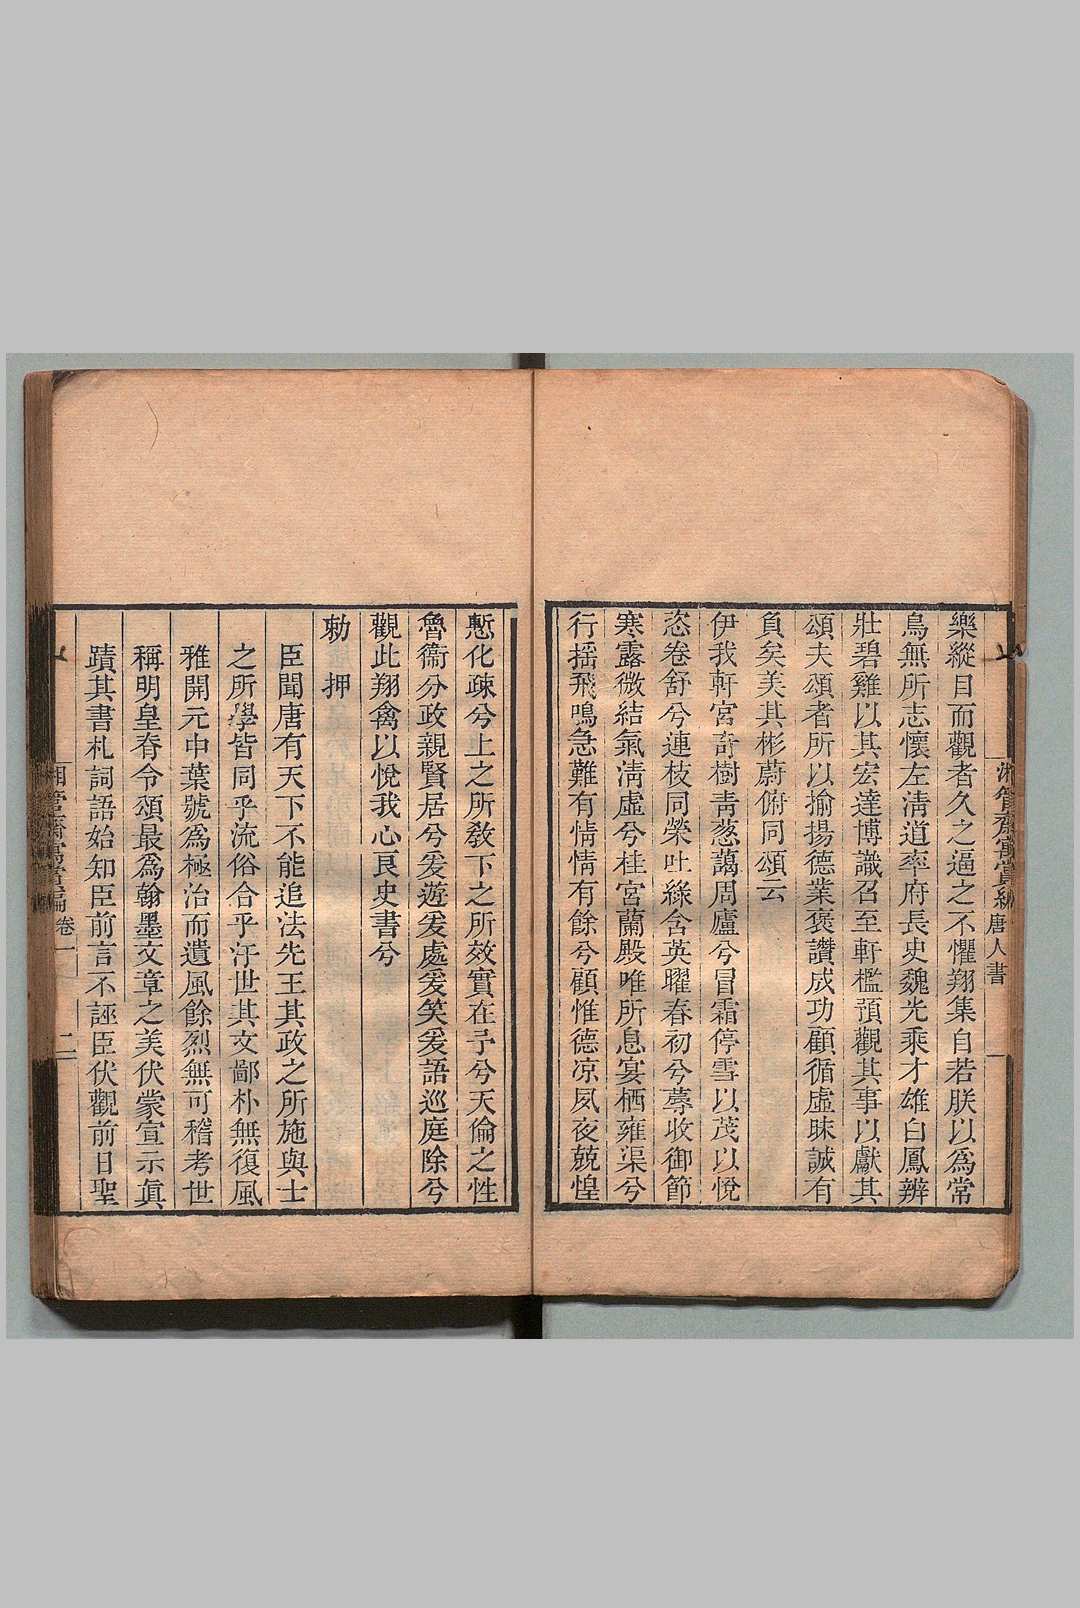 樂縱目而觀者久之逼之不懼翔集自若朕以為常
鳥無所志懷左清道率府長史魏光乘才雄白鳳辨
壯碧雞以其宏達博識召至軒檻預觀其事以獻其
頌夫頌者所以揄揚德業褒讚成功顧循虛昧誠有
負矣美其彬蔚俯同頌云
伊我軒宮奇樹青蔥藹周廬兮冒霜停雪以茂以悅
恣卷舒兮連枝同榮吐綠含英曜春初兮蓐收御節
寒露微結氣清虛兮桂宮蘭殿唯所息宴栖雍渠兮
行搖飛鳴急難有情情有餘兮顧惟德凉夙夜兢惶
慙化疎兮上之所敎下之所效實在予兮天倫之性
魯衞分政親賢居兮爰遊爰處爰笑爰語巡庭除兮
觀此翔禽以悅我心良史書兮
勑 押
臣聞唐有天下不能追法先王其政之所施與士
之所學皆同乎流俗合乎汙世其文鄙朴無復風
雅開元中葉號為極治而遺風餘烈無可稽考世
稱明皇脊令頌最為翰墨文章之美伏蒙宣示眞
蹟其書札詞語始知臣前言不誣臣伏觀前日聖
湘管齋寓賞編 卷一 二
唐人書